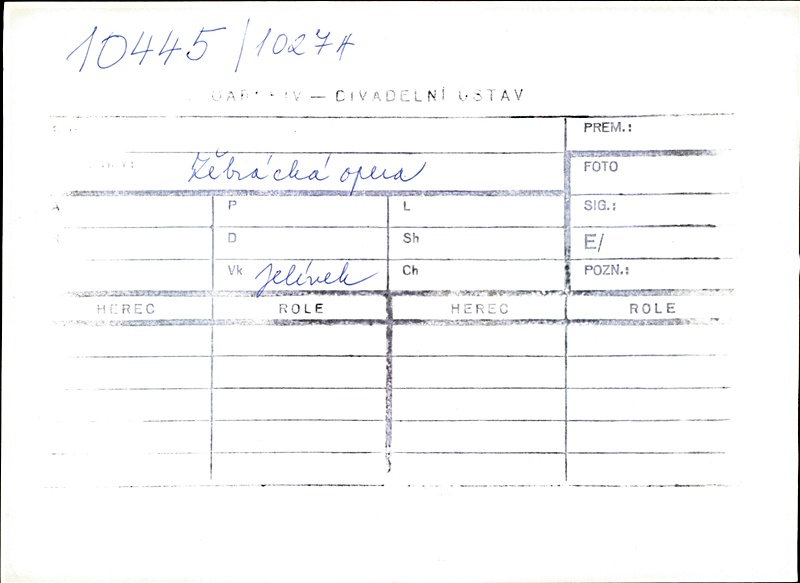 10445/10274
— DIVADELNÍ ÚSTAV
PREM.:
Žěbrácká opera
FOTO
P
L
SIG.:
D
Sh
E/
Vk Jelínek
Ch
POZN.:
HEREC ROLE HEREC ROLE